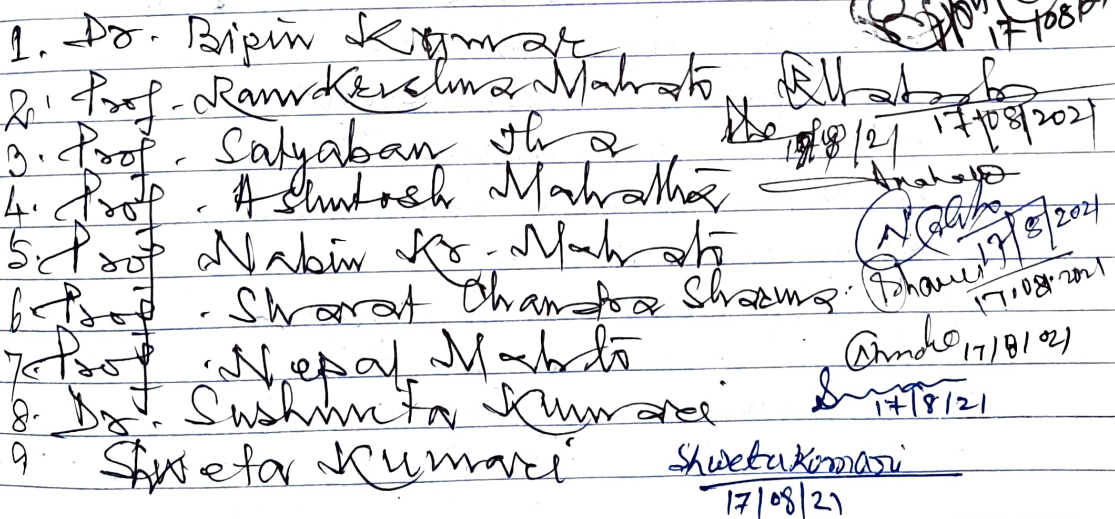 1. Dr. Bipin Kumar 17/08/
2. Prof. Ramkrishna Mahato RMahato 17/08/2021
3. Prof. Satyaban Jha 18/8/21
4. Prof. Ashutosh Mahatha
5. Prof Nabin Kr. Mahato 17/8/2021
6. Prof. Sharat Chandra Sharma. 17.08.2021
7. Prof. Nepal Mahato 17/8/021
8. Dr. Sushmita Kumari 17/8/21
9. Shweta Kumari Shweta Kumari 17/08/21